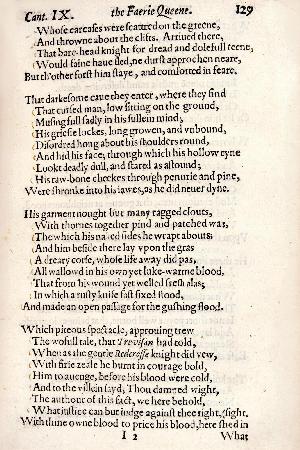 Cant. IX. the Faerie Queene. 129
Whose carcases were scattred on the greene,
And throwne about the clifts. Arriued there,
That bare-head knight for dread and dolefull teene,
Would faine haue fled, ne durst approchen neare,
But th'other forst him staye, and comforted in feare.
That darkesome caue they enter, where they find
That cursed man, low sitting on the ground,
Musing full sadly in his sullein mind;
His griesie lockes, long growen, and vnbound,
Disordred hong about his shoulders round,
And hid his face; through which his hollow eyne
Lookt deadly dull, and stared as astound;
His raw-bone cheekes through penurie and pine,
Were shronke into his iawes, as he did neuer dyne.
His garment nought but many ragged clouts,
With thornes together pind and patched was,
The which his naked sides he wrapt abouts;
And him beside there lay vpon the gras
A dreary corse, whose life away did pas,
All wallowd in his own yet luke-warme blood,
That from his wound yet welled fresh alas;
In which a rusty knife fast fixed stood,
And made an open passage for the gushing flood.
Which piteous spectacle, approuing trew
The wofull tale, that Treuisan had told,
When as the gentle Redcrosse knight did vew,
With firie zeale he burnt in courage bold,
Him to auenge, before his blood were cold,
And to the villein sayd, Thou damned wight,
The authour of this fact, we here behold,
What iustice can but iudge against thee right, (sight.
With thine owne blood to price his blood, here shed in
I 2 What